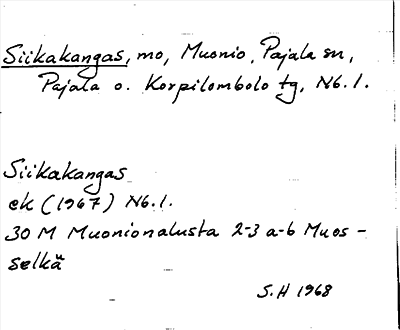 Siikakangas, mo, Muonio, Pajala sn,
Pajala o. Korpilombolo tg, Nb.l.
Siikakangas
ek (1967) Nb.l.
30 M Muonionalusta 2-3 a-b Muos-
selkä
S.H 1968